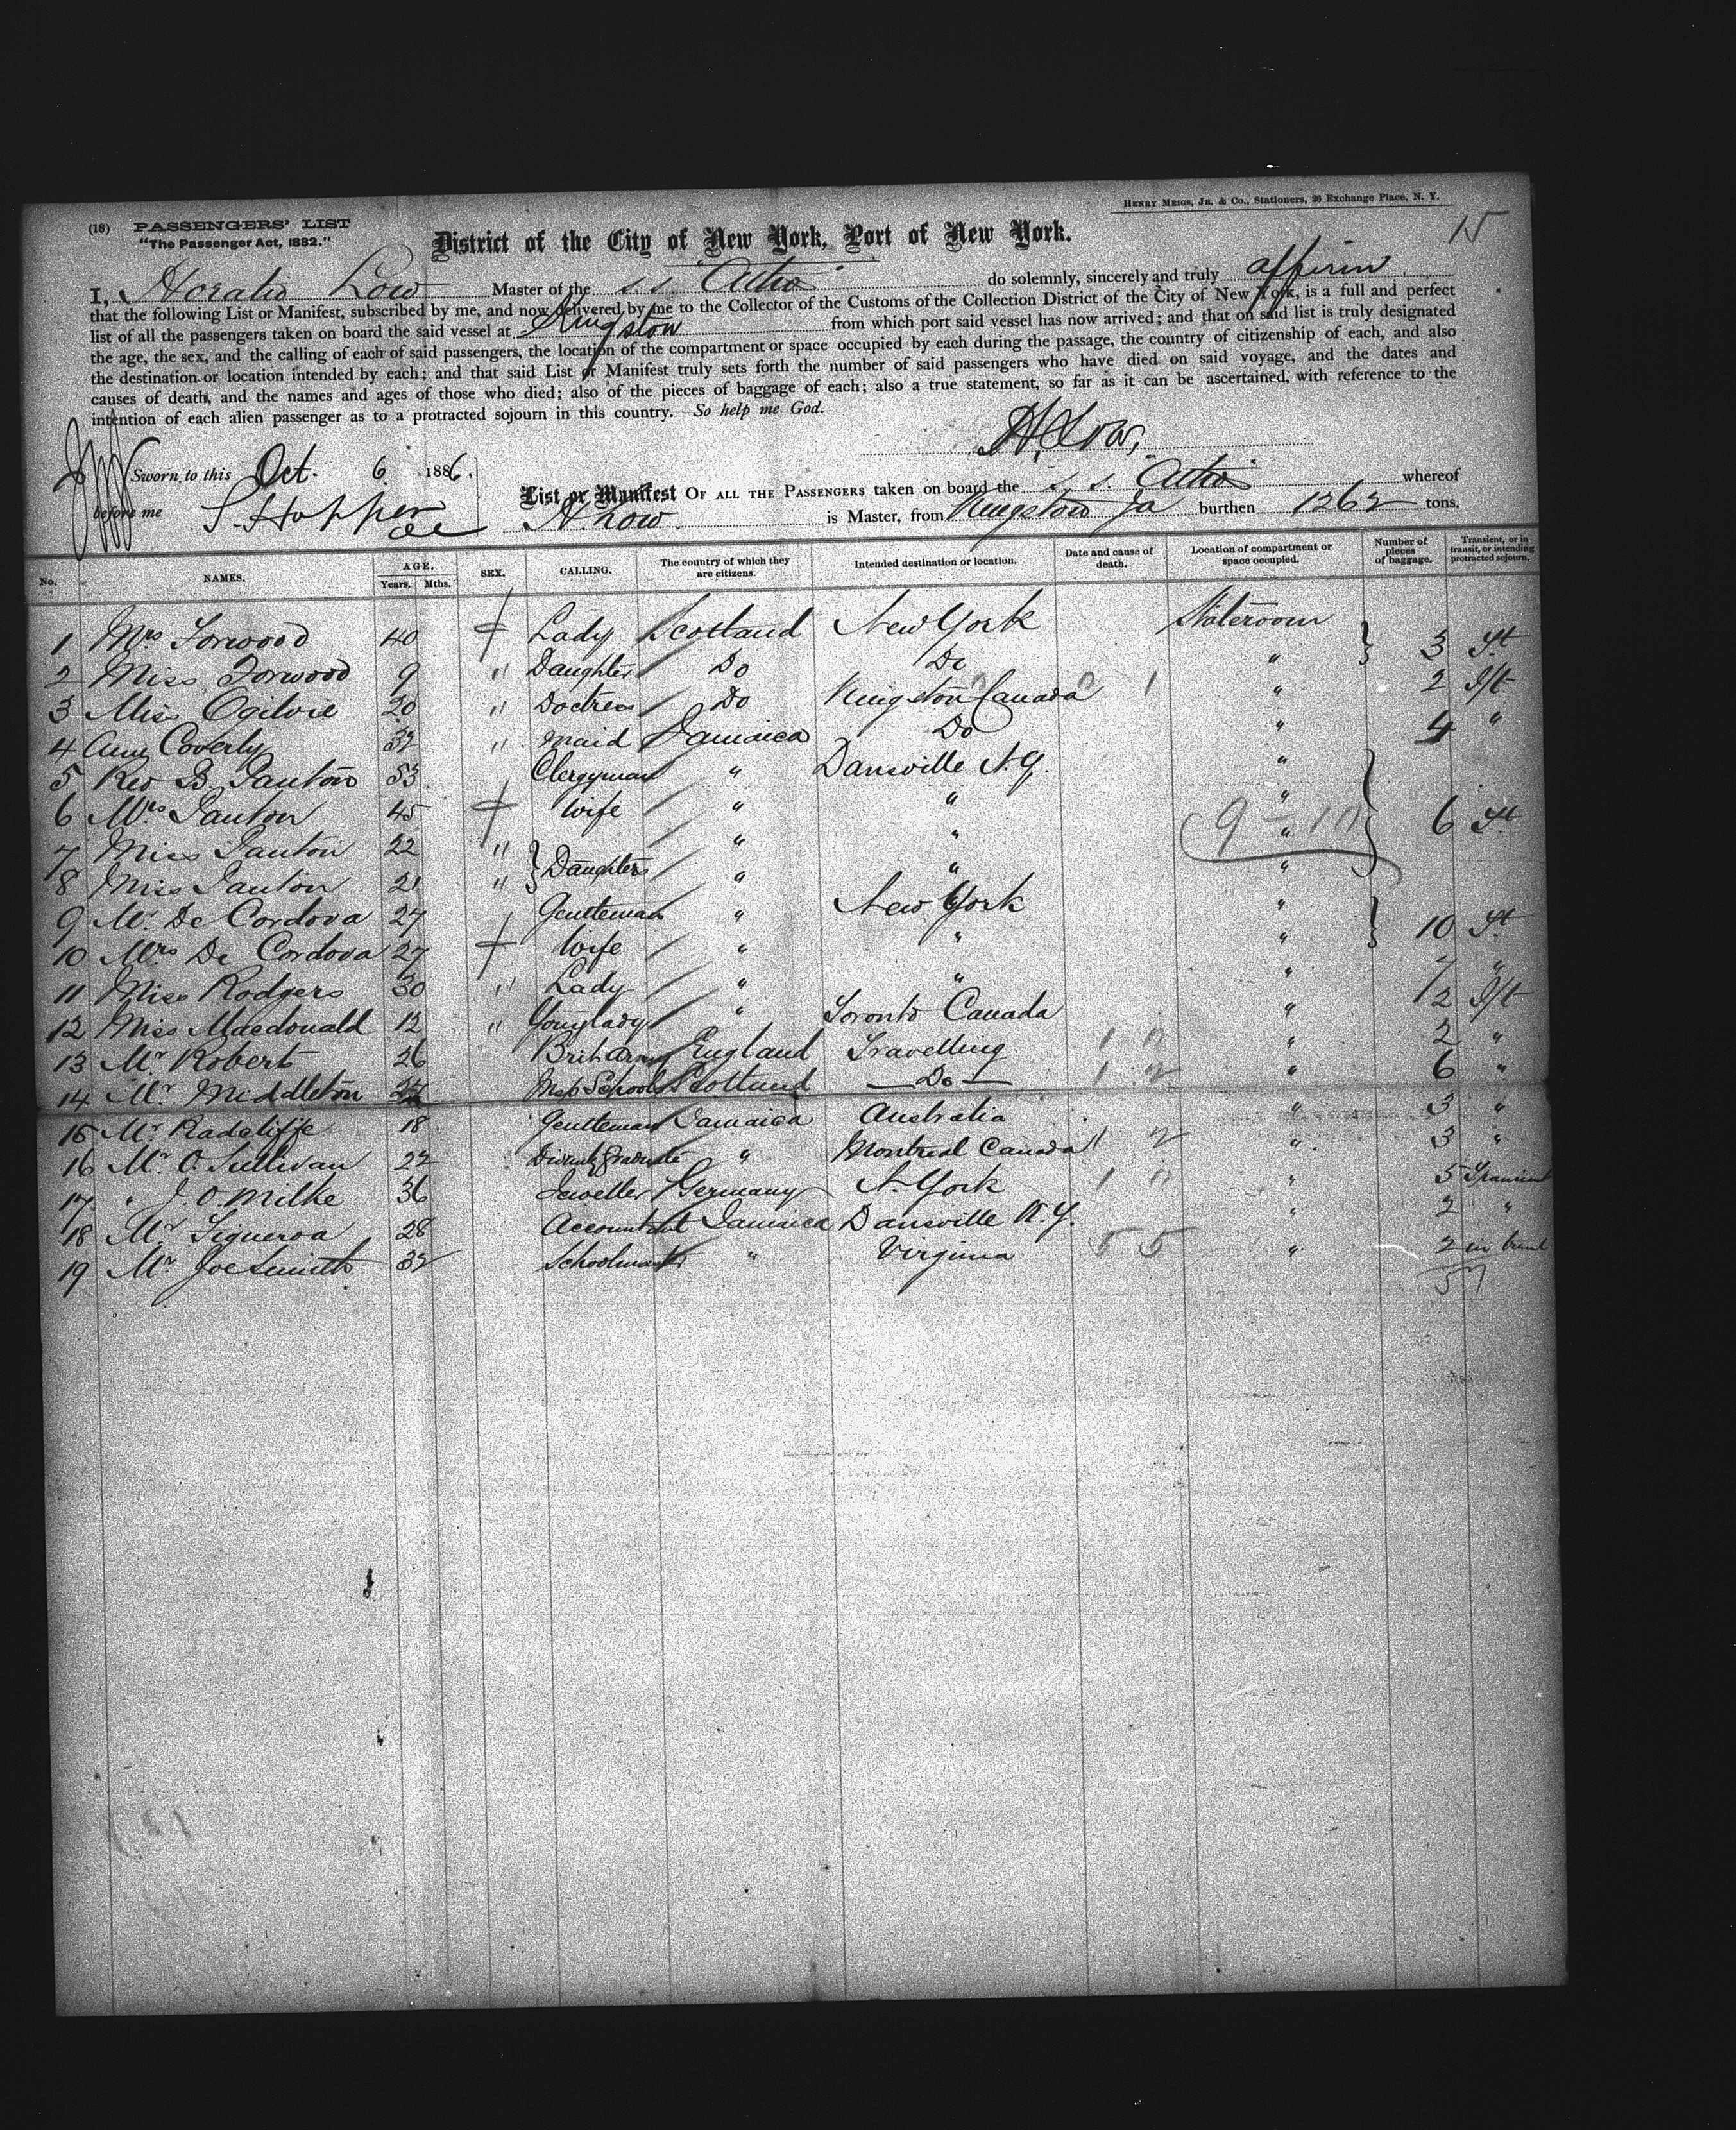 HENRY MEIGS, JR. & CO., Stationers, 26 Exchange Place, N. Y.
(18) PASSENGERS' LIST
"The Passenger Act, 1882."
15
District of the City of New York, Port of New York.
I, Horatio Low Master of the s.s. do solemnly, sincerely and truly affirm
that the following List or Manifest, subscribed by me, and now delivered by me to the Collector of the Customs of the Collection District of the City of New York, is a full and perfect
list of all the passengers taken on board the said vessel at Kingston from which port said vessel has now arrived; and that on said list is truly designated
the age, the sex, and the calling of each of said passengers, the location of the compartment or space occupied by each during the passage, the country of citizenship of each, and also
the destination or location intended by each; and that said List or Manifest truly sets forth the number of said passengers who have died on said voyage, and the dates and
causes of death, and the names and ages of those who died; also of the pieces of baggage of each; also a true statement, so far as it can be ascertained, with reference to the
intention of each alien passenger as to a protracted sojourn in this country. So help me God.
H. Low,
Sworn to this Oct. 6 1886.
before me S Hopper
List or Manifest OF ALL THE PASSENGERS taken on board the s. s. whereof
H Low is Master, from Kingston Ja burthen 1262 tons.
No. NAMES. AGE. Years. Mths. SEX. CALLING. The country of which they are citizens. Intended destination or location. Date and cause of death. Location of compartment or space occupied. Number of pieces of baggage. Transient, or in transit, or intending protracted sojourn.
1 Mrs Forwood 40 Lady Scotland New York Stateroom
2 Miss Forwood 9 " Daughter Do Do " 3
3 Miss Ogilvie 20 " Doctress Do Kingston Canada " 2
4 Amy Coverly 32 " maid Jamaica Do " 4 "
5 Rev B. Panton 53 Clergyman " Dansville N.Y. "
6 Mrs Panton 45 wife " " "
7 Miss Panton 22 " Daughters " " " 6
8 Miss Panton 21 " " " "
9 Mr De Cordova 27 Gentleman " New York "
10 Mrs De Cordova 27 Wife " " " 10
11 Miss Rodgers 30 " Lady " " " 7 "
12 Miss Macdonald 12 " Young lady " Toronto Canada " 2
13 Mr Robert 26 Brit Army England Travelling " 2 "
14 Mr Middleton Insp Schools Scotland — Do — " 6 "
15 Mr Radcliffe 18 Gentleman Jamaica Australia " 3 "
16 Mr O. Sullivan 22 Graduate " Montreal Canada " 3 "
17 " J. O. Milke 36 Jeweller Germany N. York " 5 Transient
18 Mr Figueroa 28 Accountant Jamaica Dansville N.Y. " 2 "
19 Mr Joe Smith 32 Schoolmaster " Virginia 5 5 " 2 in transt
57